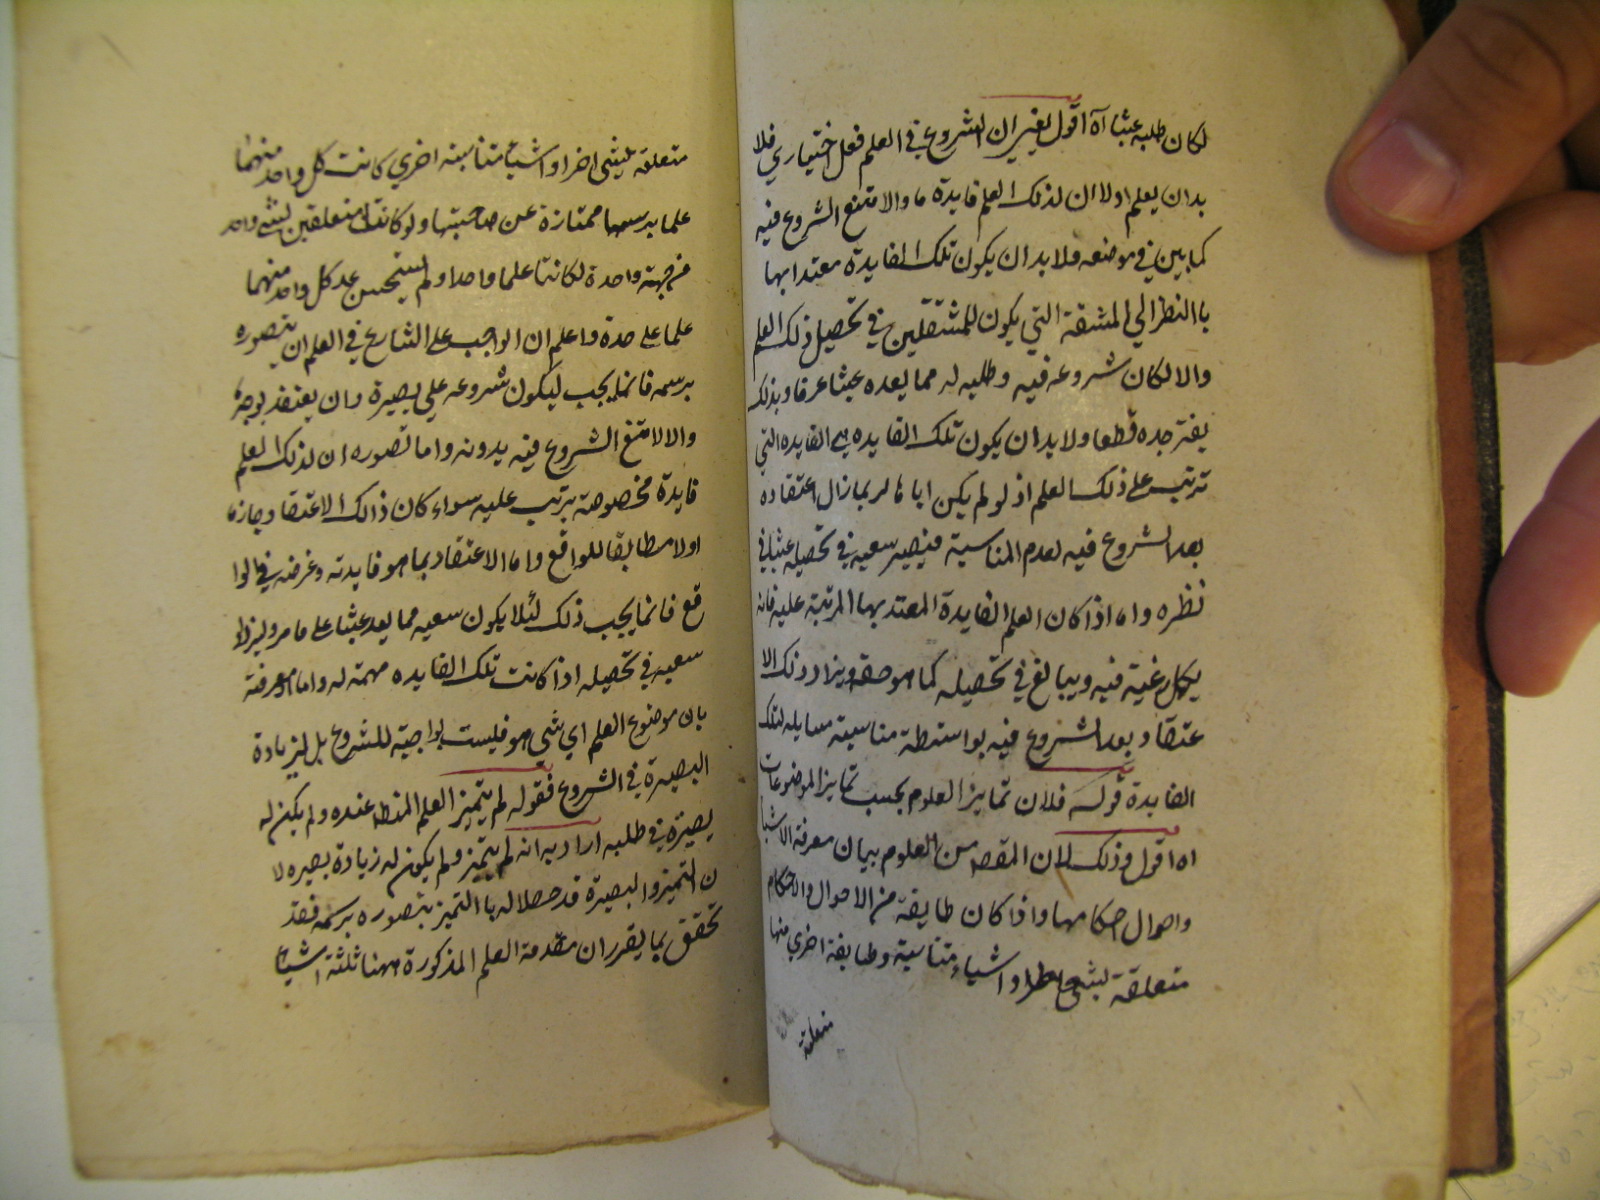 لكان طلبه عبثا آه اقول يغير ان الشروع في العلم فعل اختياري فلا
بدان يعلم اولا ان لذلك العلم فايدة ما والا امتنع الشروع فيه
كما بين في موضعه ولا بد ان يكون تلك الفايدة معتدا بها
باالنظر الي المشقة التي يكون للمشتغلين في تحصيل ذلك العلم
والا لكان شروعه فيه وطلبه له مما يعده عبثا عرفا وبذلك
يفتر جده قطعا ولا بد ان يكون تلك الفايده هي الفايده التي
ترتب علي ذلك العلم اذ لو لم يكن اياها لربما زال اعتقاده
بعد الشروع فيه لعدم المناسبة فيصير سعيه في تحصيله عبثا في
نظره واما اذا كان العلم الفايدة المعتد بها المرتبة عليه فانه
يكمل رغبته فيه ويبالغ في تحصيله كما هو حقه ويزداد ذلك الا
عتقاد بعد الشروع فيه بواسطة مناسبة مسايله لتلك
الفايدة قوله فلان تمايز العلوم بحسب تمايز الموضوعات
اه اقول وذلك لان المقصد من العلوم بيان معرفة الاشيا
واحوال احكامها واذا كان طايفة من الاحوال والاحكام
متعلقة بشي او اشياء متناسبة وطايفة اخري منها
متعلقة
متعلقة بشيى اخر او اشياء متناسبة اخري كانت كل واحد منهما
علما برسمها ممتازة عن صاحبتها ولو كانتا متعلقين بشي واحد
من جهة واحدة لكانتا علما واحدا ولم يستحسن عد كل واحد منهما
علما علي حدة واعلم ان الواجب علي الشارع في العلم ان يتصوره
برسمه فانما يجب ليكون شروعه علي بصيرة وان يعتقد بوجه
والا لامتنع الشروع فيه بدونه واما تصوره ان لذلك العلم
فايدة مخصوصة يرتب عليه سواء كان ذالك الاعتقاد جازما
اولا مطابقا للواقع واما الاعتقاد بما هو فايدته وغرضه في الوا
قع فانما يجب ذلك لئلا يكون سعيه مما يعد عبثا علي ما مر وليزداد
سعيه في تحصيله اذا كانت تلك الفايده مهمة له واما معرفته
بان موضوع العلم اي شي هو فليست بواجبة للشروع بل لزيادة
البصيرة في الشروع فقوله لم يتميز العلم المنط عنده ولم يكن له
بصيرة في طلبه اراد به انه لم يتميز ولم يكون له زيادة بصيره لا
ن التميز والبصيرة قد حصلا له باالتميز بتصوره برسمه فقد
تحقق بما يقرر ان مقدمة العلم المذكورة ههنا ثلثة اشياء